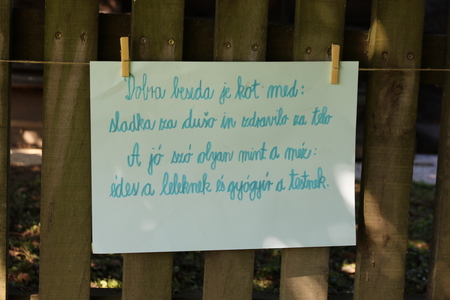 Dobra beseda je kot med:
sladka za dušo in zdravilo za telo
A jó szó olyan mint a méz:
édes a léleknek és gyógyír a testnek.